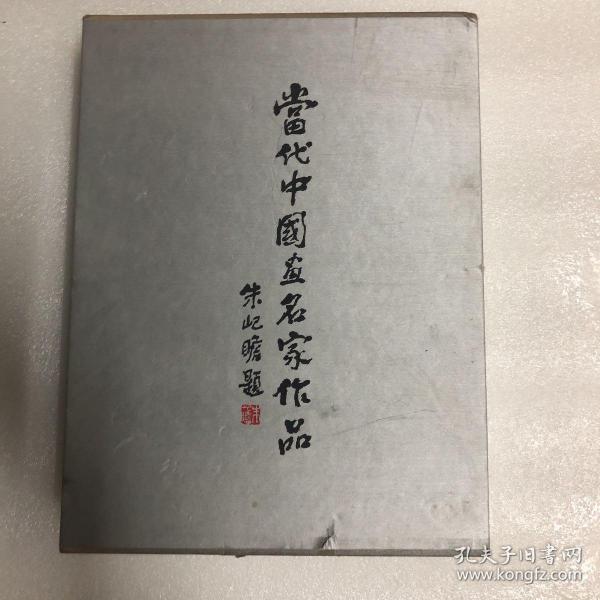 當代中國画名家作品
朱屺瞻題
孔夫子旧書网
www.kongfz.com